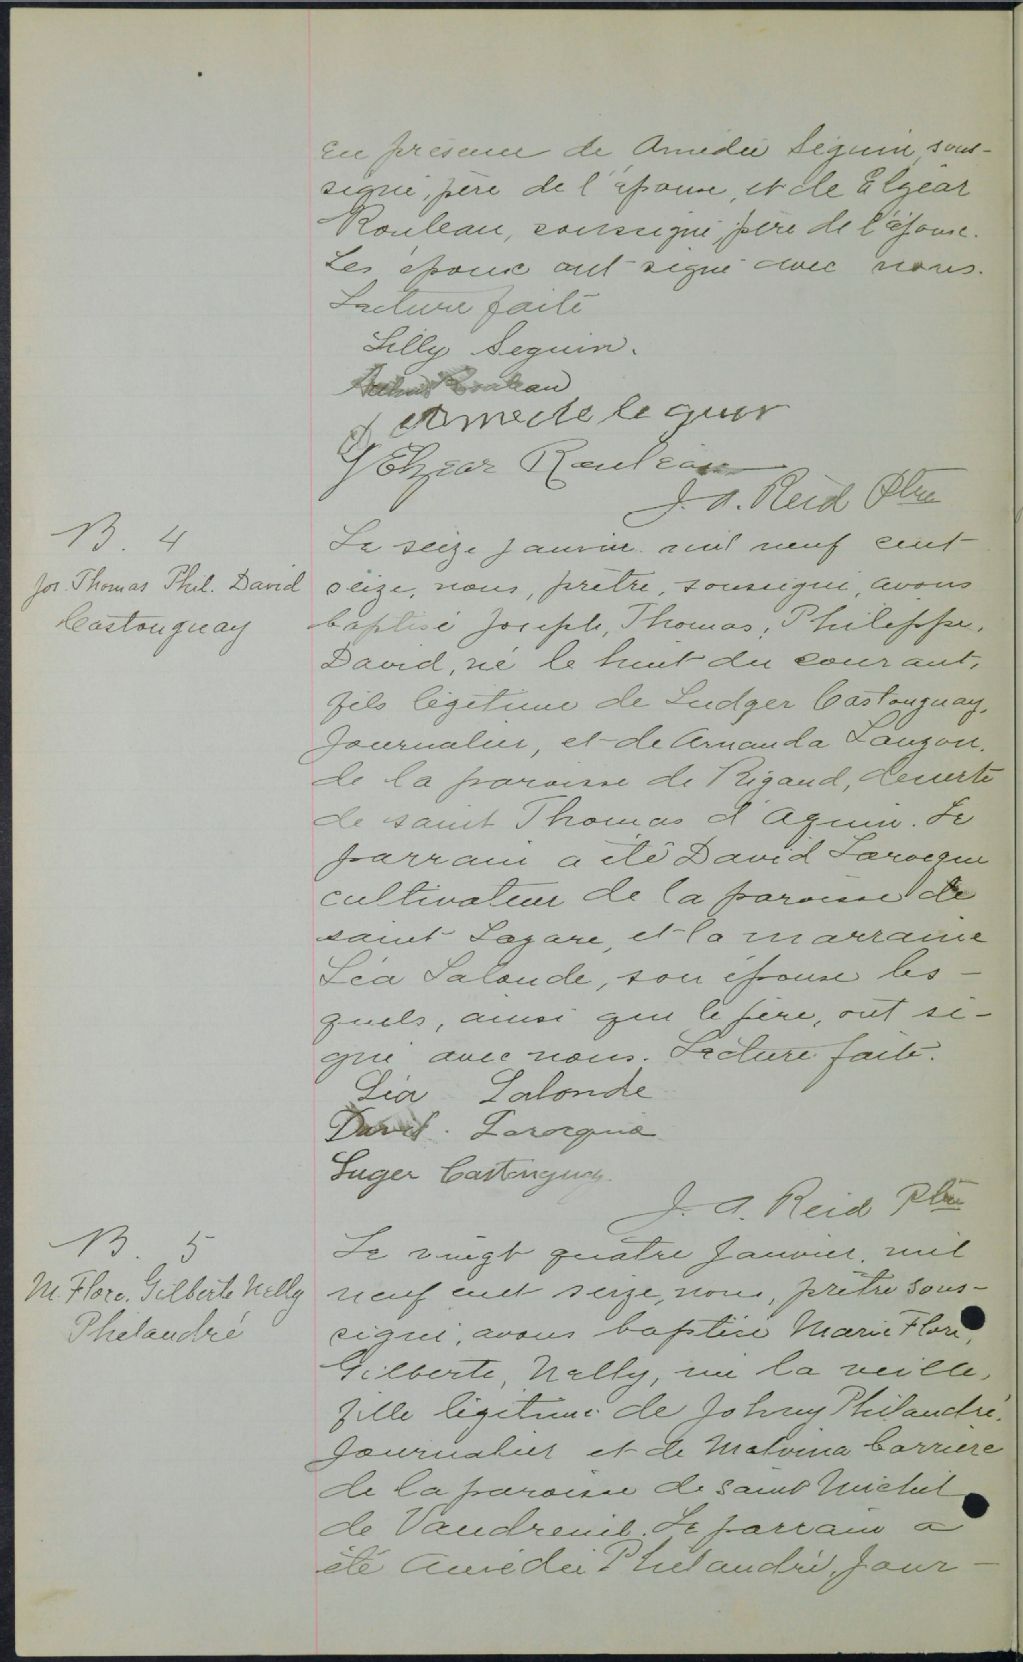 en présence de Amédée Séguin, sous-
signé, père de l'épouse, et de Elgéar
Rouleau, soussigné père de l'époux.
Les époux ont signé avec nous.
Lecture faite
Lilly Seguin.
Rouleau
Amede Seguin
Elzear Rouleau
J. A. Reid Ptre
B. 4
Jos. Thomas Phil. David
Castonguay
Le seize janvier mil neuf cent
seize, nous, prêtre, soussigné, avons
baptisé Joseph, Thomas, Philippe,
David, né le huit du courant,
fils légitime de Ludger Castonguay,
journalier, et de Amanda Lauzon,
de la paroisse de Rigaud, desserte
de saint Thomas d'Aquin. Le
parrain a été David Larocque
cultivateur de la paroisse de
saint Lazare, et la marraine
Léa Lalonde, son épouse les-
quels, ainsi que le père, ont si-
gné avec nous. Lecture faite.
Léa Lalonde
David Larocque
Luger Castonguay
J. A. Reid Ptre
B. 5
M. Flore, Gilberte Nelly
Philandré
Le vingt quatre janvier, mil
neuf cent seize, nous, prêtre sous-
signé, avons baptisé Marie Flore,
Gilberte, Nelly, née la veille,
fille légitime de Johnny Philandré,
journalier et de Malvina Carrière
de la paroisse de saint Michel
de Vaudreuil. Le parrain a
été Amédée Philandré, jour-